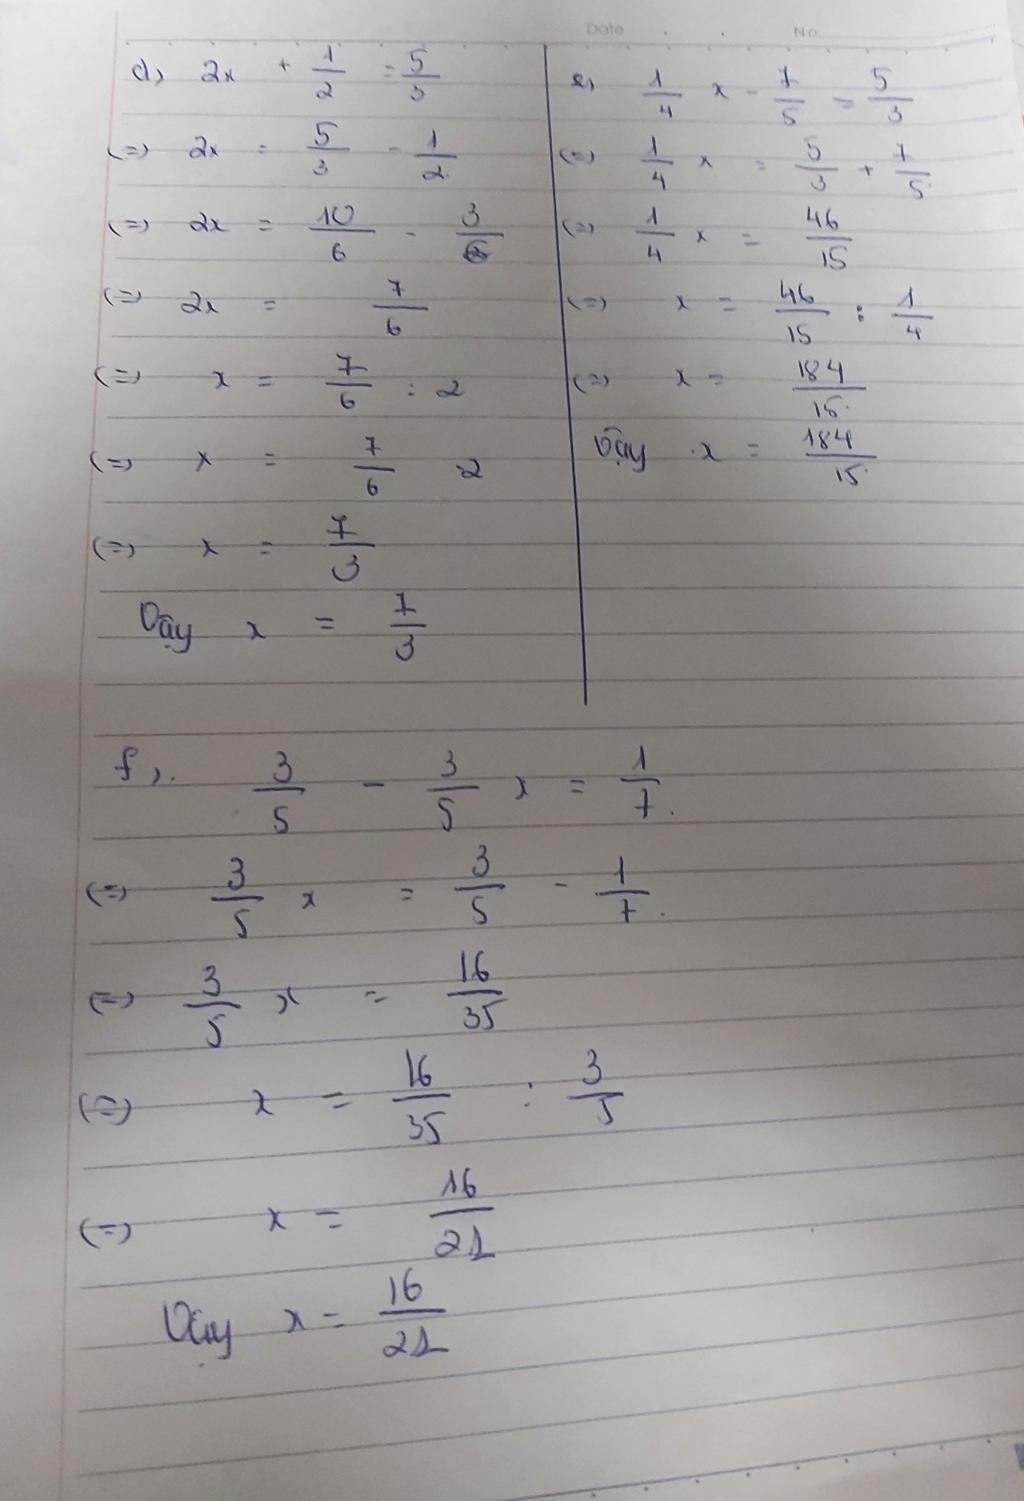 Date No
d) 2x + 1/2 = 5/3
(=) 2x = 5/3 - 1/2
(=) 2x = 10/6 - 3/6
(=) 2x = 7/6
(=) x = 7/6 : 2
(=) x = 7/6 . 2
(=) x = 7/3
Vậy x = 7/3
e) 1/4 x - 7/5 = 5/3
(=) 1/4 x = 5/3 + 7/5
(=) 1/4 x = 46/15
(=) x = 46/15 : 1/4
(=) x = 184/15
Vậy x = 184/15
f) 3/5 - 3/5 x = 1/7
(=) 3/5 x = 3/5 - 1/7
(=) 3/5 x = 16/35
(=) x = 16/35 : 3/5
(=) x = 16/21
Vậy x = 16/21